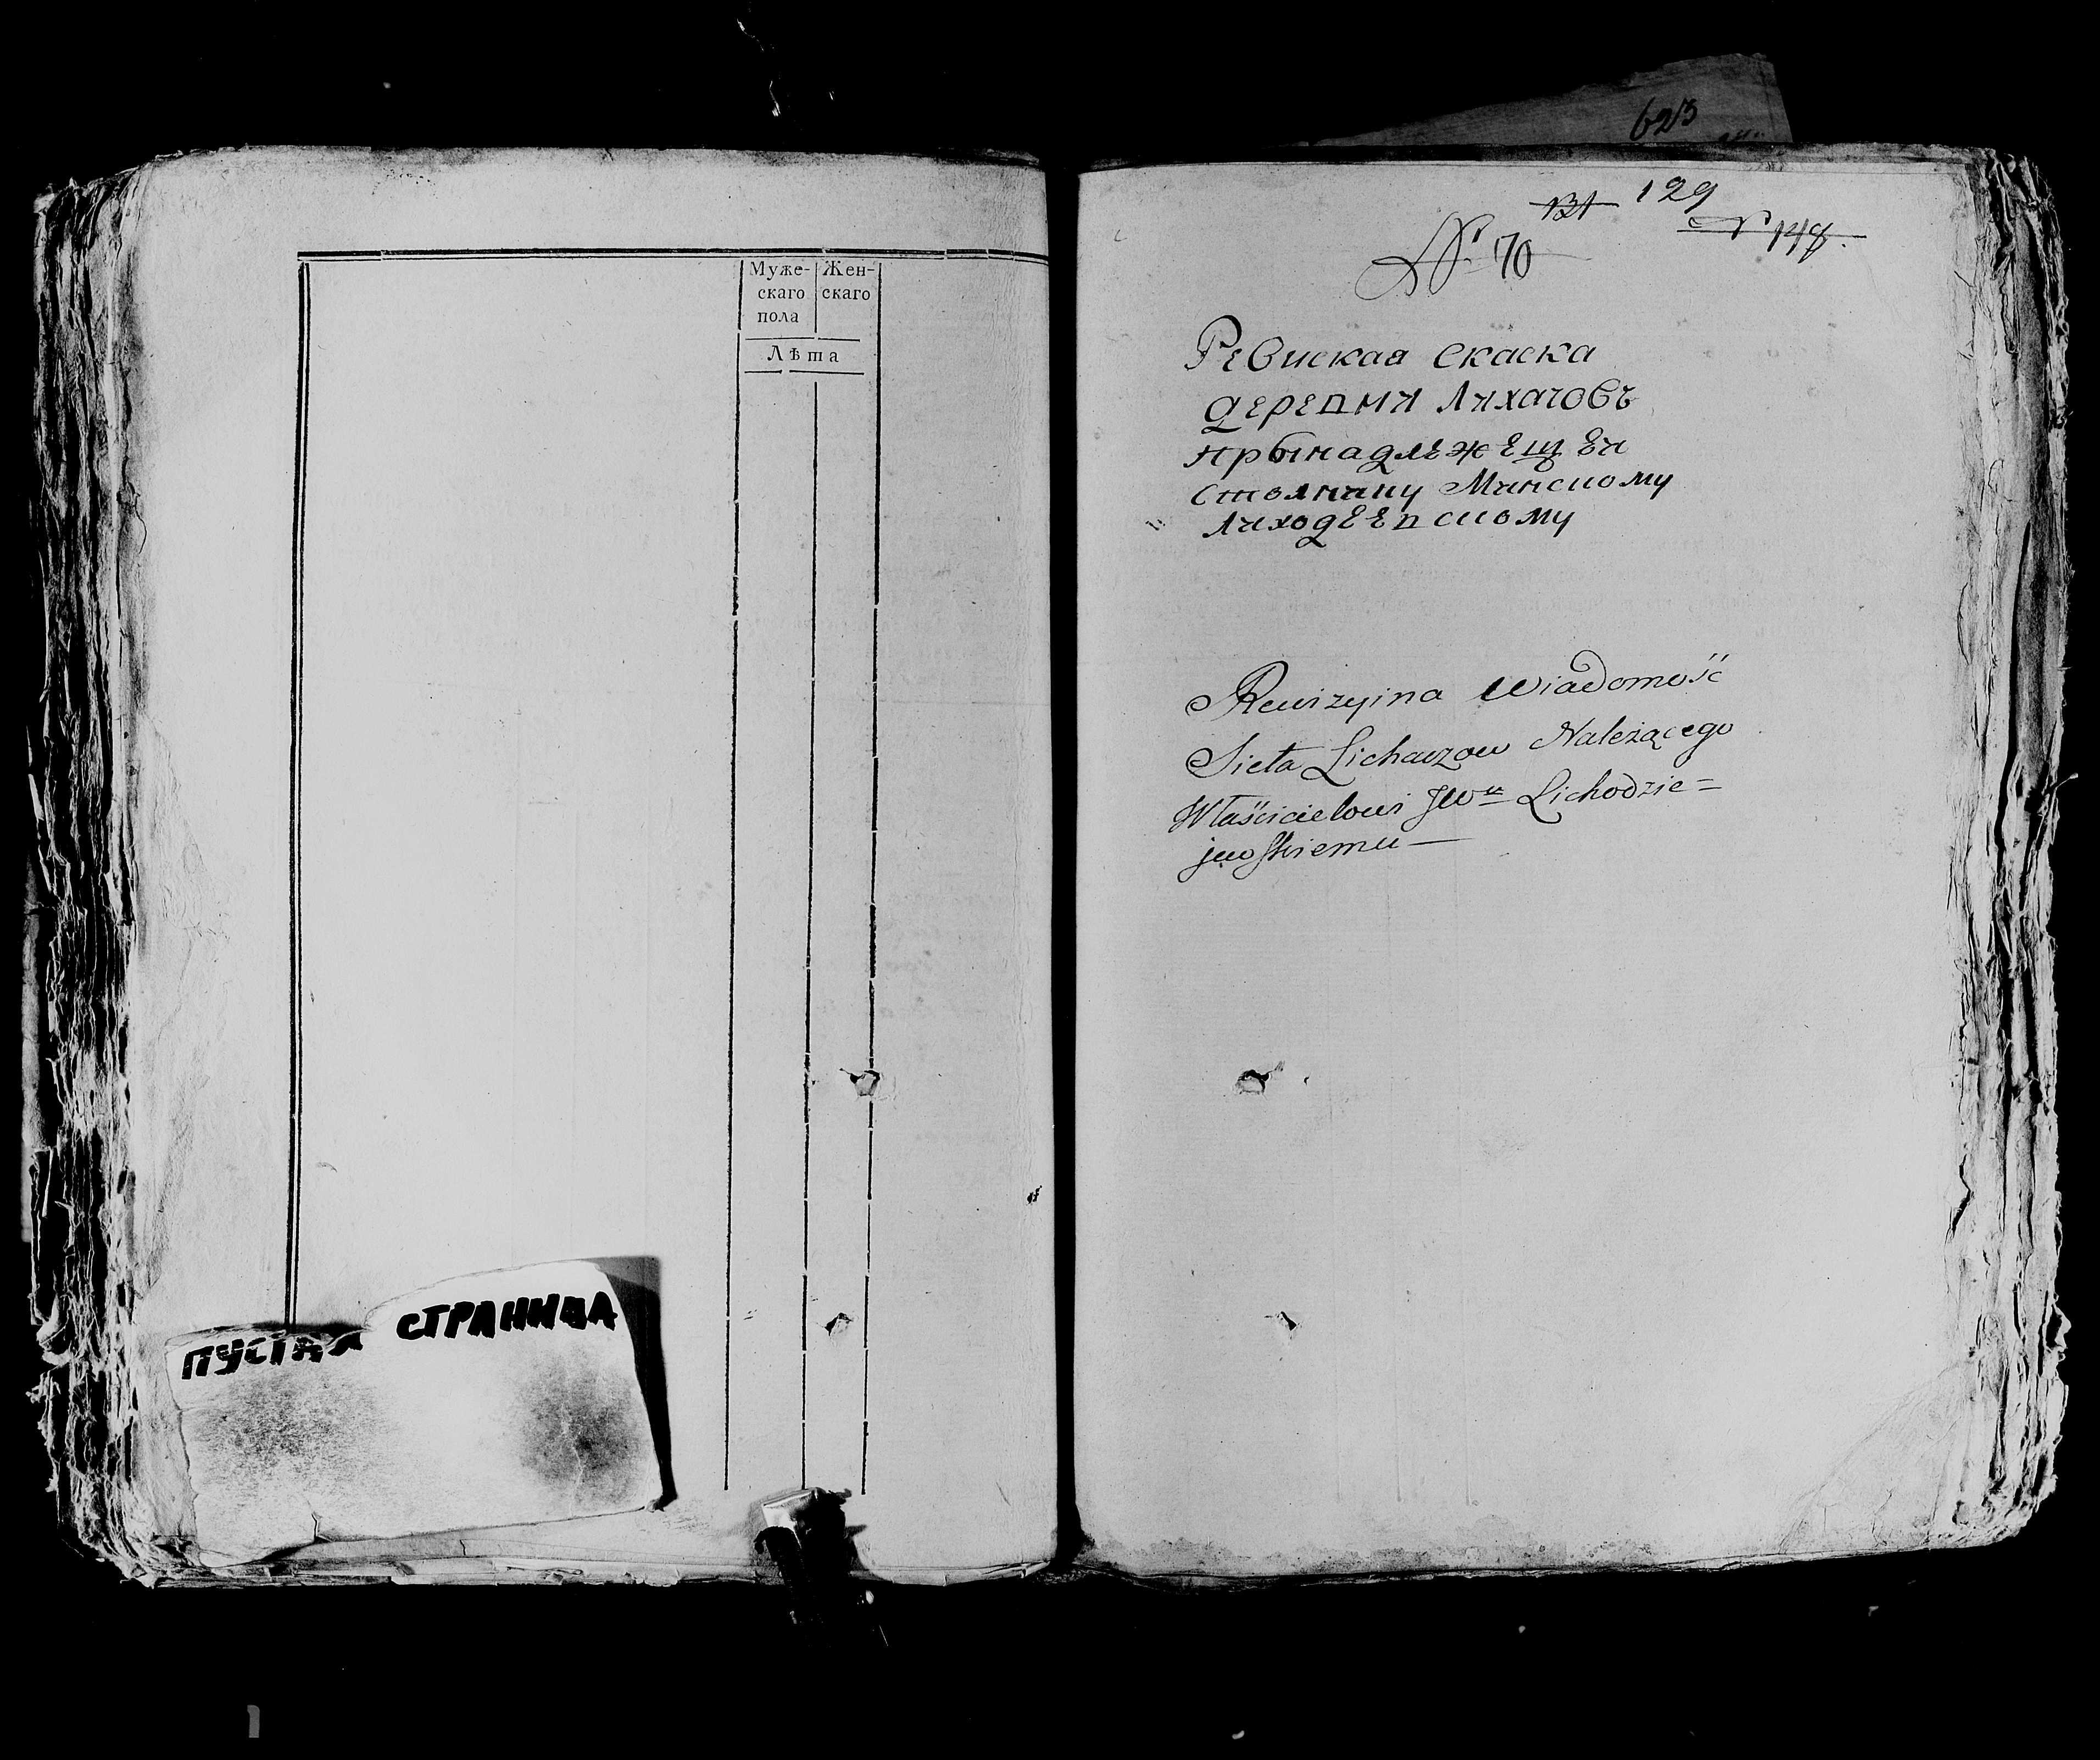 Муже-
скаго
пола
Жен-
скаго
Лѣта
ПУСТАЯ СТРАНИЦА
623
131 129
№ 148.
№ 70
Ревиская скаска
деревни Лихачовъ
прынадлежещея
Столнику Минскому
Лиходеевскому
Rewizyina Wiadomość
Sieła Lichaczow Należącego
Właścicielowi JWu Lichodzie=
jewskiemu —